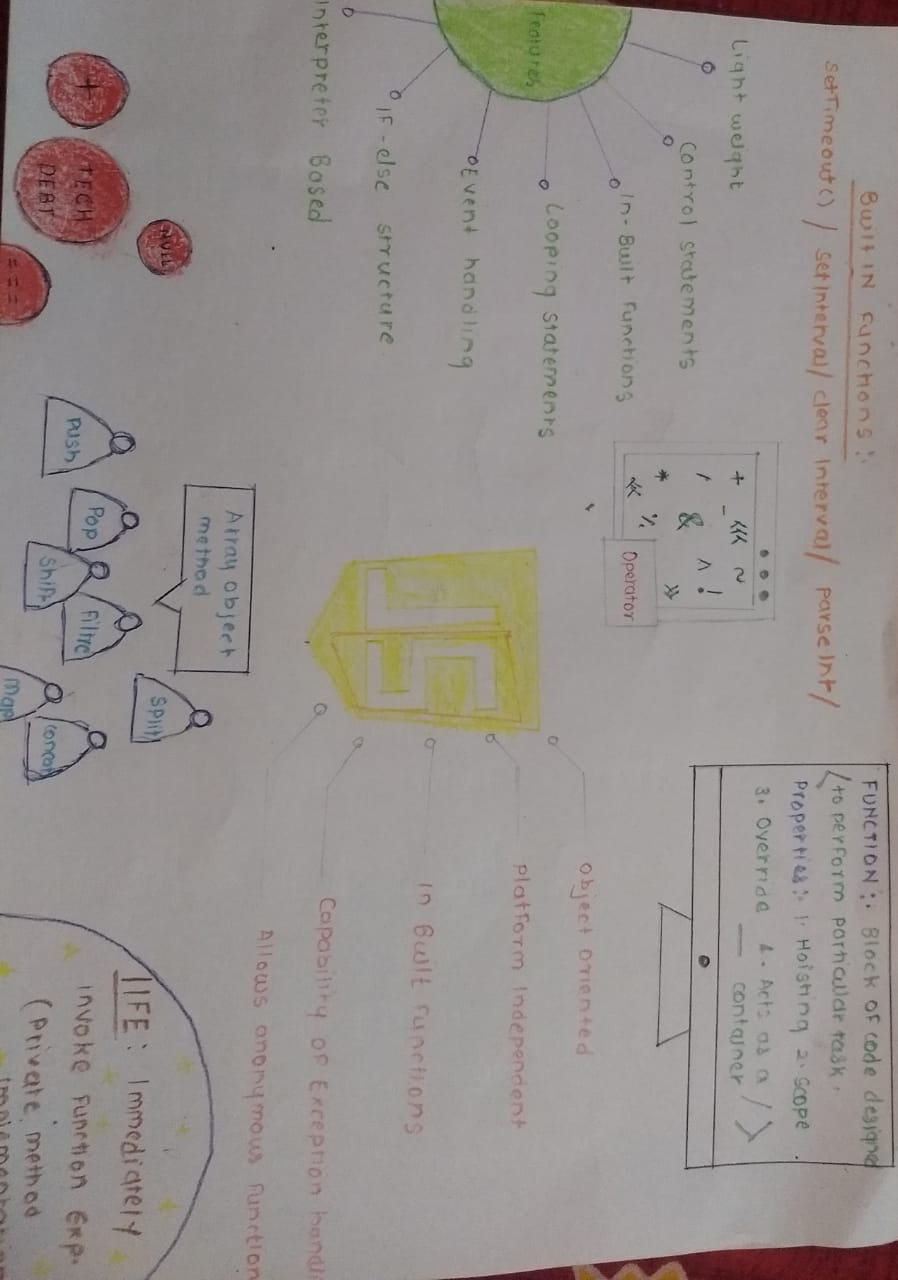 Built IN Functions:-
setTimeout() / setInterval/ clear Interval/ parseInt/
FUNCTION:- Block of code designed
to perform particular task.
Properties:- 1. Hoisting 2. Scope
3. Override 4. Acts as a
container
/>
Light weight
Control statements
In-Built Functions
Looping statements
Features
Event handling
IF-else structure
Interpreter Based
+ <<< ~
/ - ^ !
& >>
* %
<<
Operator
JS
Object Oriented
Platform Independent
In Built Functions
Capability of Exception handli
Allows anonymous Function
NULL
+
TECH
DEBT
===
Array object
method
Split
Push
Pop
Shift
Filtre
map
concat
IIFE: Immediately
invoke Function Exp.
(Private method